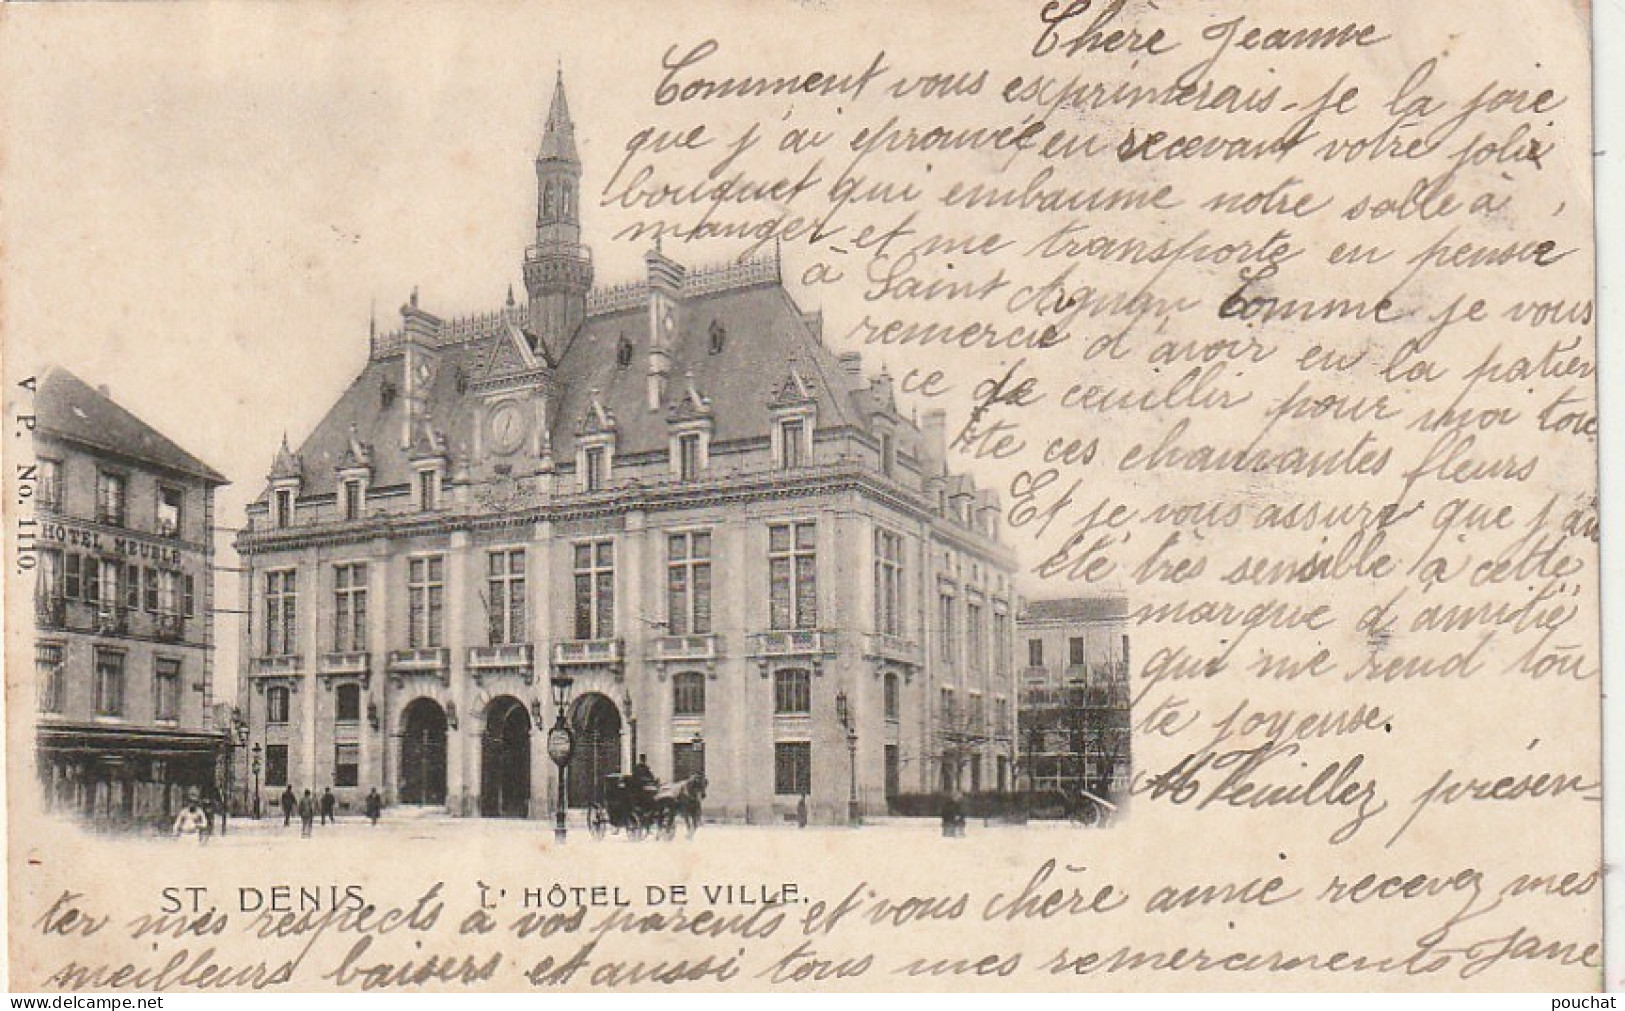 Chère Jeanne
Comment vous exprimerais-je la joie
que j'ai eprouvée en recevant votre jolie
bouquet qui embaume notre salle à
manger et me transporte en pensée
à Saint Agnan Comme je vous
remercie d'avoir en la patien
ce de ceuillir pour moi tou
te ces charmantes fleurs
Et je vous assure que j'ai
été très sensible à cette
marque d'amitié
qui me rend tou
te joyeuse.
Veuillez présen-
ter mes respects à vos parents et vous chère amie recevez mes
meilleurs baisers et aussi tous mes remerciments Jane
V. P. No. 1110.
HOTEL MEUBLÉ
ST. DENIS. L'HÔTEL DE VILLE.
www.delcampe.net
pouchat